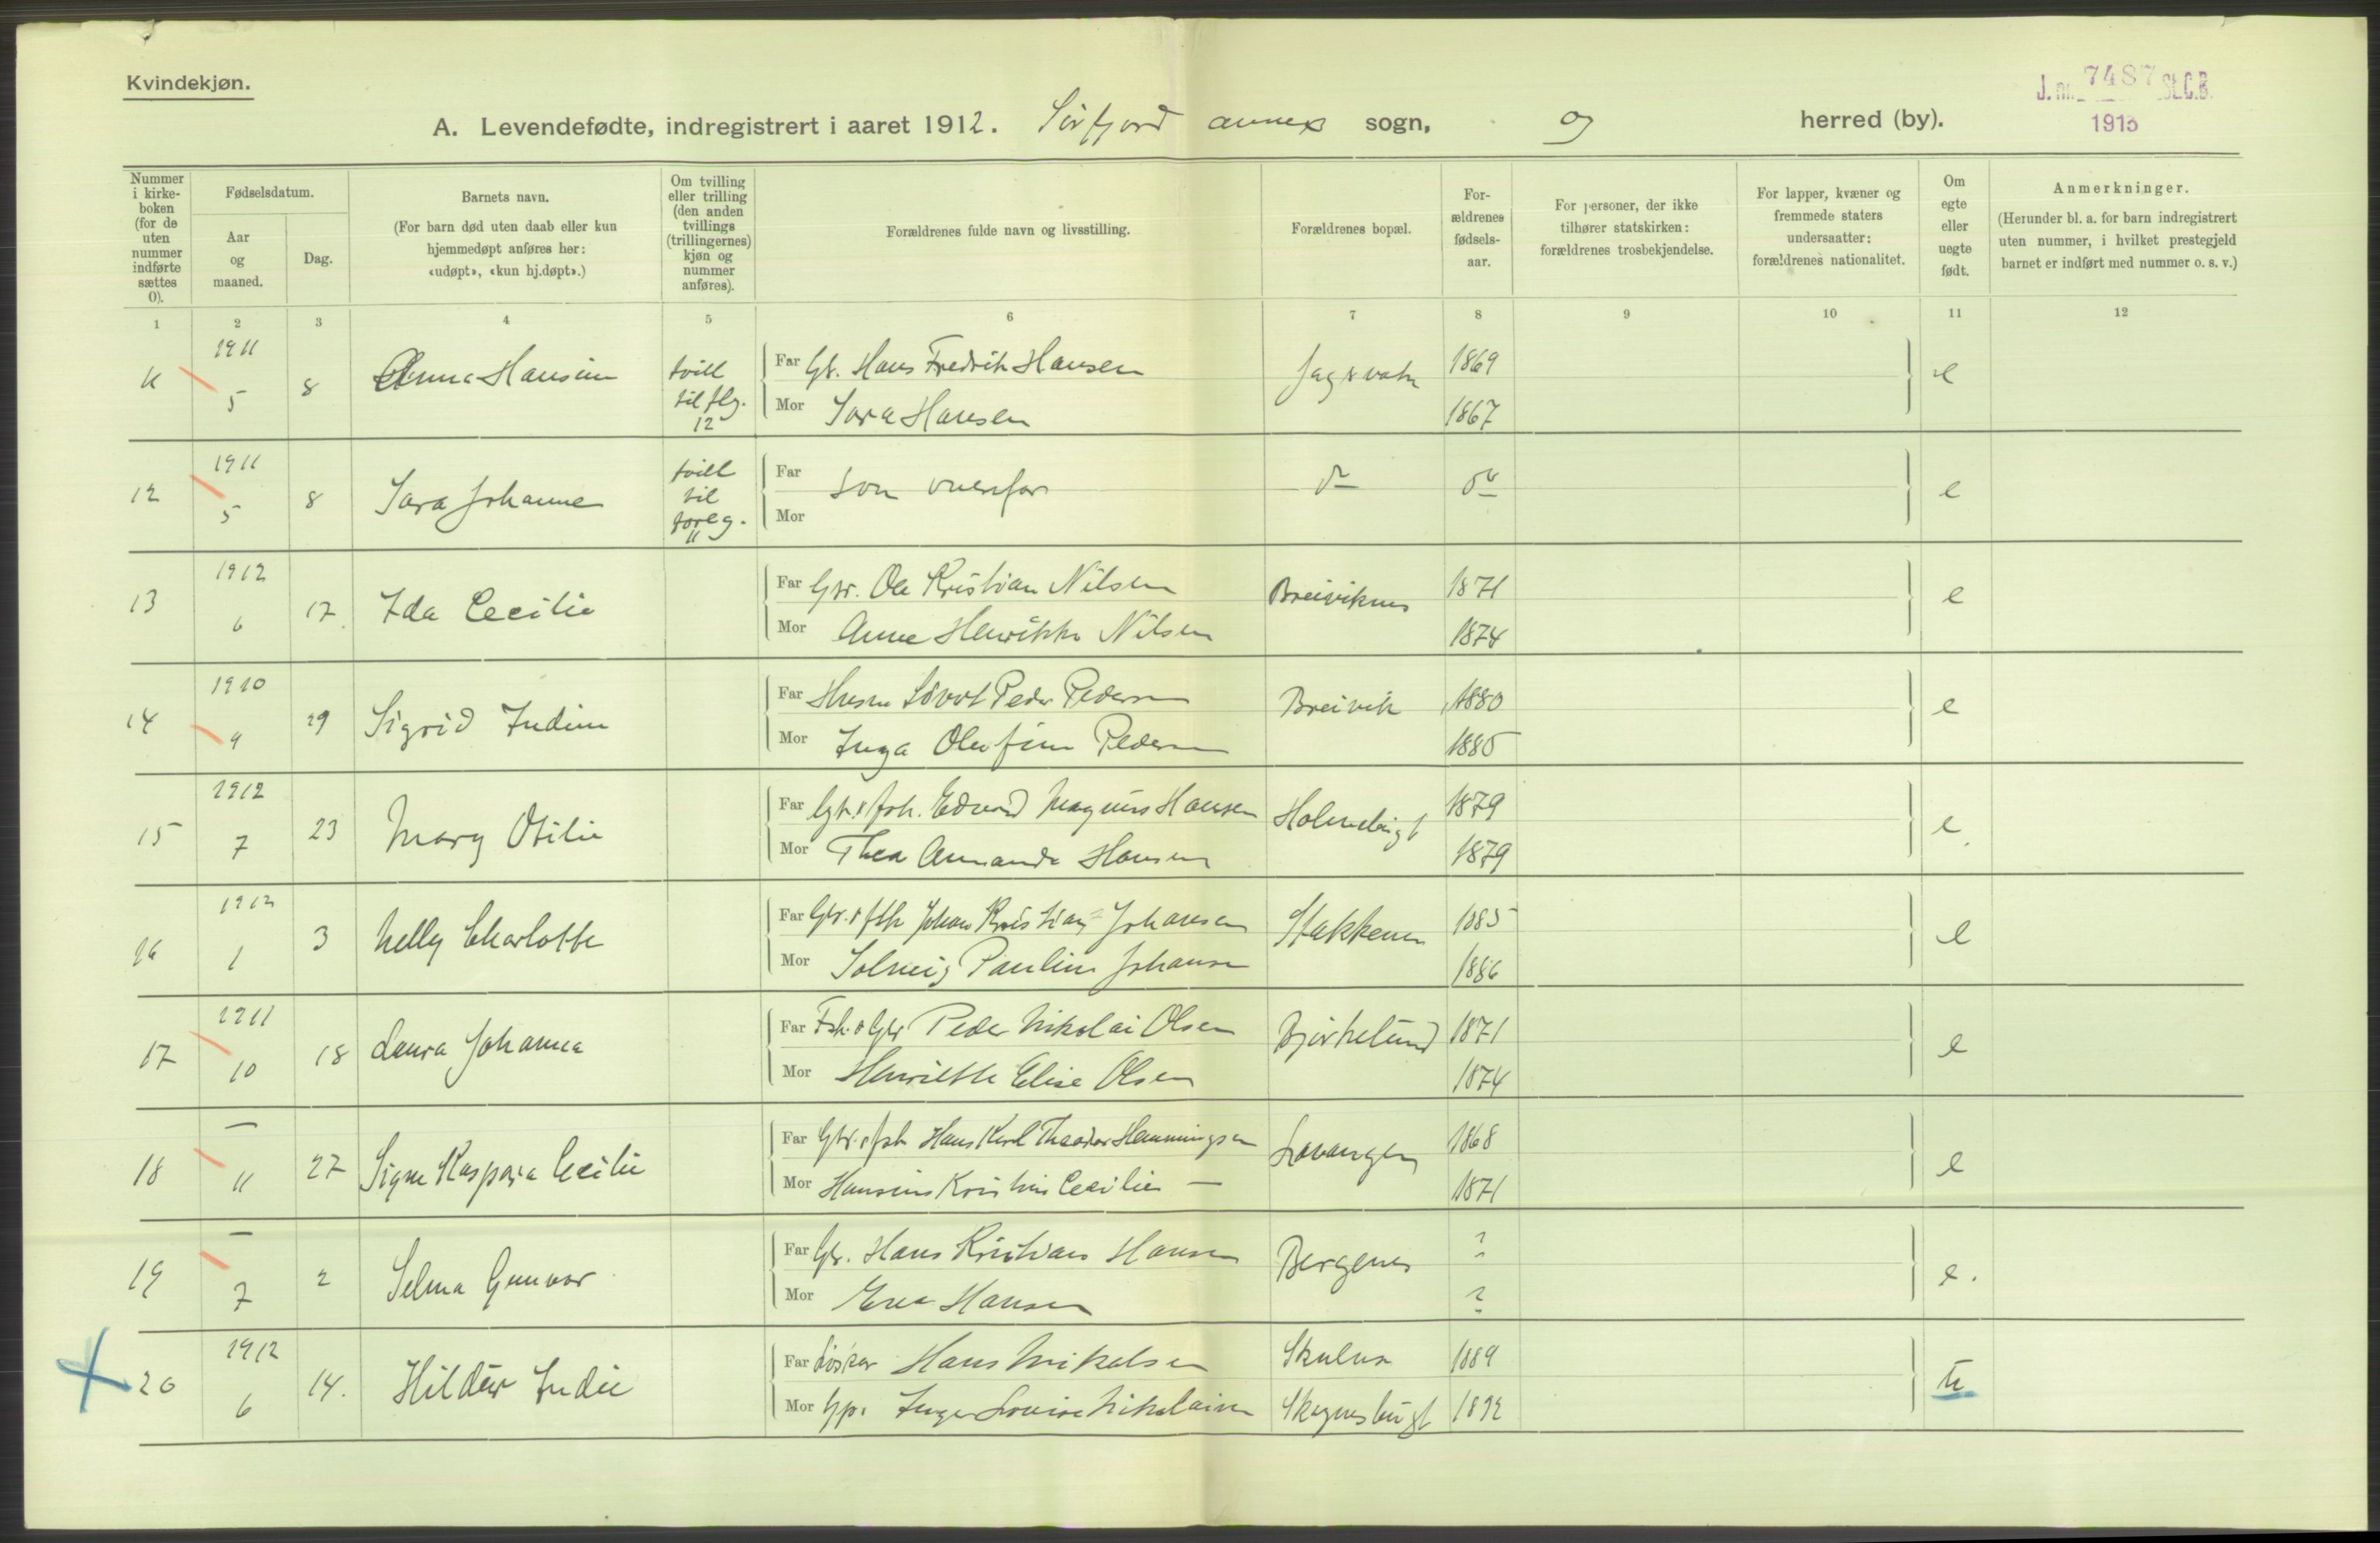 Kvindekjøn.
J. nr. 7487 St.C.B.
1913
A. Levendefødte, indregistrert i aaret 1912. Sørfjord annex sogn, og herred (by).
Nummer i kirkeboken (for de uten nummer indførte sættes 0).
Fødselsdatum.
Aar og maaned.
Dag.
Barnets navn.
(For barn død uten daab eller kun hjemmedøpt anføres her: «udøpt», «kun hj.døpt».)
Om tvilling eller trilling (den anden tvillings (trillingernes) kjøn og nummer anføres).
Forældrenes fulde navn og livsstilling.
Forældrenes bopæl.
Forældrenes fødselsaar.
For personer, der ikke tilhører statskirken: forældrenes trosbekjendelse.
For lapper, kvæner og fremmede staters undersaatter: forældrenes nationalitet.
Om egte eller uegte født.
Anmerkninger.
(Herunder bl. a. for barn indregistrert uten nummer, i hvilket prestegjeld barnet er indført med nummer o. s. v.)
1 2 3 4 5 6 7 8 9 10 11 12
11 1911 5 8 Anna Hansine tvill til flg. 12 Far Gb. Hans Fredrik Hansen 1869 e
Mor Sara Hansen 1867
12 1911 5 8 Sara Johanne tvill til foreg. 11 Far som ovenfor do do e
Mor
13 1912 6 17 Ida Cecilie Far Gbr. Ole Kristian Nilsen Breiviknes 1871 e
Mor Anne Henrikke Nilsen 1874
14 1910 9 29 Sigrid Indine Far Peder Pedersen Breivik 1880 e
Mor Inga Olufine Pedersen 1885
15 1912 7 23 Mary Otilie Far Gbr. & fsk. Edvard Magnus Hansen Holmebugt 1879 e
Mor Thea Amanda Hansen 1879
16 1912 1 3 Nelly Charlotte Far Gbr. & fsk Johan Kristian Johansen Stakkenes 1885 e
Mor Solveig Pauline Johansen 1886
17 1911 10 18 Laura Johanna Far Fsk. & Gbr Peder Nikolai Olsen Bjørkelund 1871 e
Mor Henriette Elise Olsen 1874
18 — 11 27 Signe Kaspara Cecilie Far Gbr. & fsk Hans Karl Theodor Henningsen Lavangen 1868 e
Mor Hansine Kristine Cecilie — 1871
19 — 7 2 Selma Gunvor Far Gb. Hans Kristian Hansen Bergenes ? e.
Mor Eva Hansen ?
20 1912 6 14. Hildur Indie Far Løsker Hans Mikalsen 1889 u
Mor Gp. Inga Lovise Nikolaisen Skognesbugt 1892